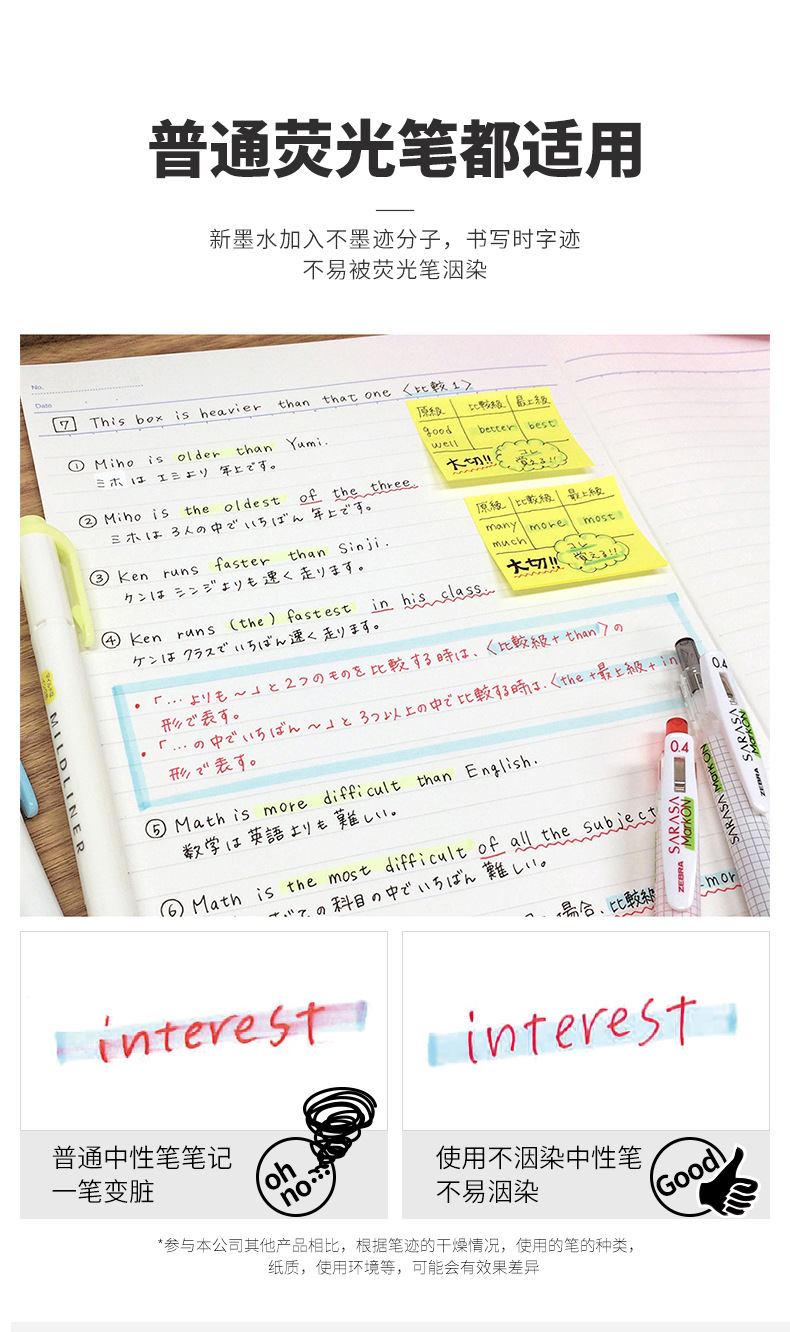 普通荧光笔都适用
新墨水加入不墨迹分子，书写时字迹
不易被荧光笔洇染
No.
Date
7 This box is heavier than that one 〈比較1〉
① Miho is older than Yumi.
ミホは エミより 年上です。
② Miho is the oldest of the three.
ミホは 3人の中で いちばん 年上です。
③ Ken runs faster than Sinji.
ケンは シンジよりも 速く 走ります。
④ Ken runs (the) fastest in his class.
ケンは クラスで いちばん 速く 走ります。
原級 比較級 最上級
good better best
well
大切!! コレ
覚える!!
原級 比較級 最上級
many more most
much
大切!! コレ
覚える!!
・「…よりも～」と2つのものを比較する時は、〈比較級+than〉の
形で表す。
・「…の中でいちばん～」と3つ以上の中で比較する時は、〈the+最上級+in
形で表す。
⑤ Math is more difficult than English.
数学は英語よりも難しい。
⑥ Math is the most difficult of all the subject
の科目の中でいちばん 難しい。
場合、比較級
mor
MILDLINER
0.4
SARASA
MarkON
ZEBRA
0.4
SARASA
MarkON
ZEBRA
SARASA MarkON
interest
普通中性笔笔记
一笔变脏
oh
no...
interest
使用不洇染中性笔
不易洇染
Good!
*参与本公司其他产品相比，根据笔迹的干燥情况，使用的笔的种类，
纸质，使用环境等，可能会有效果差异